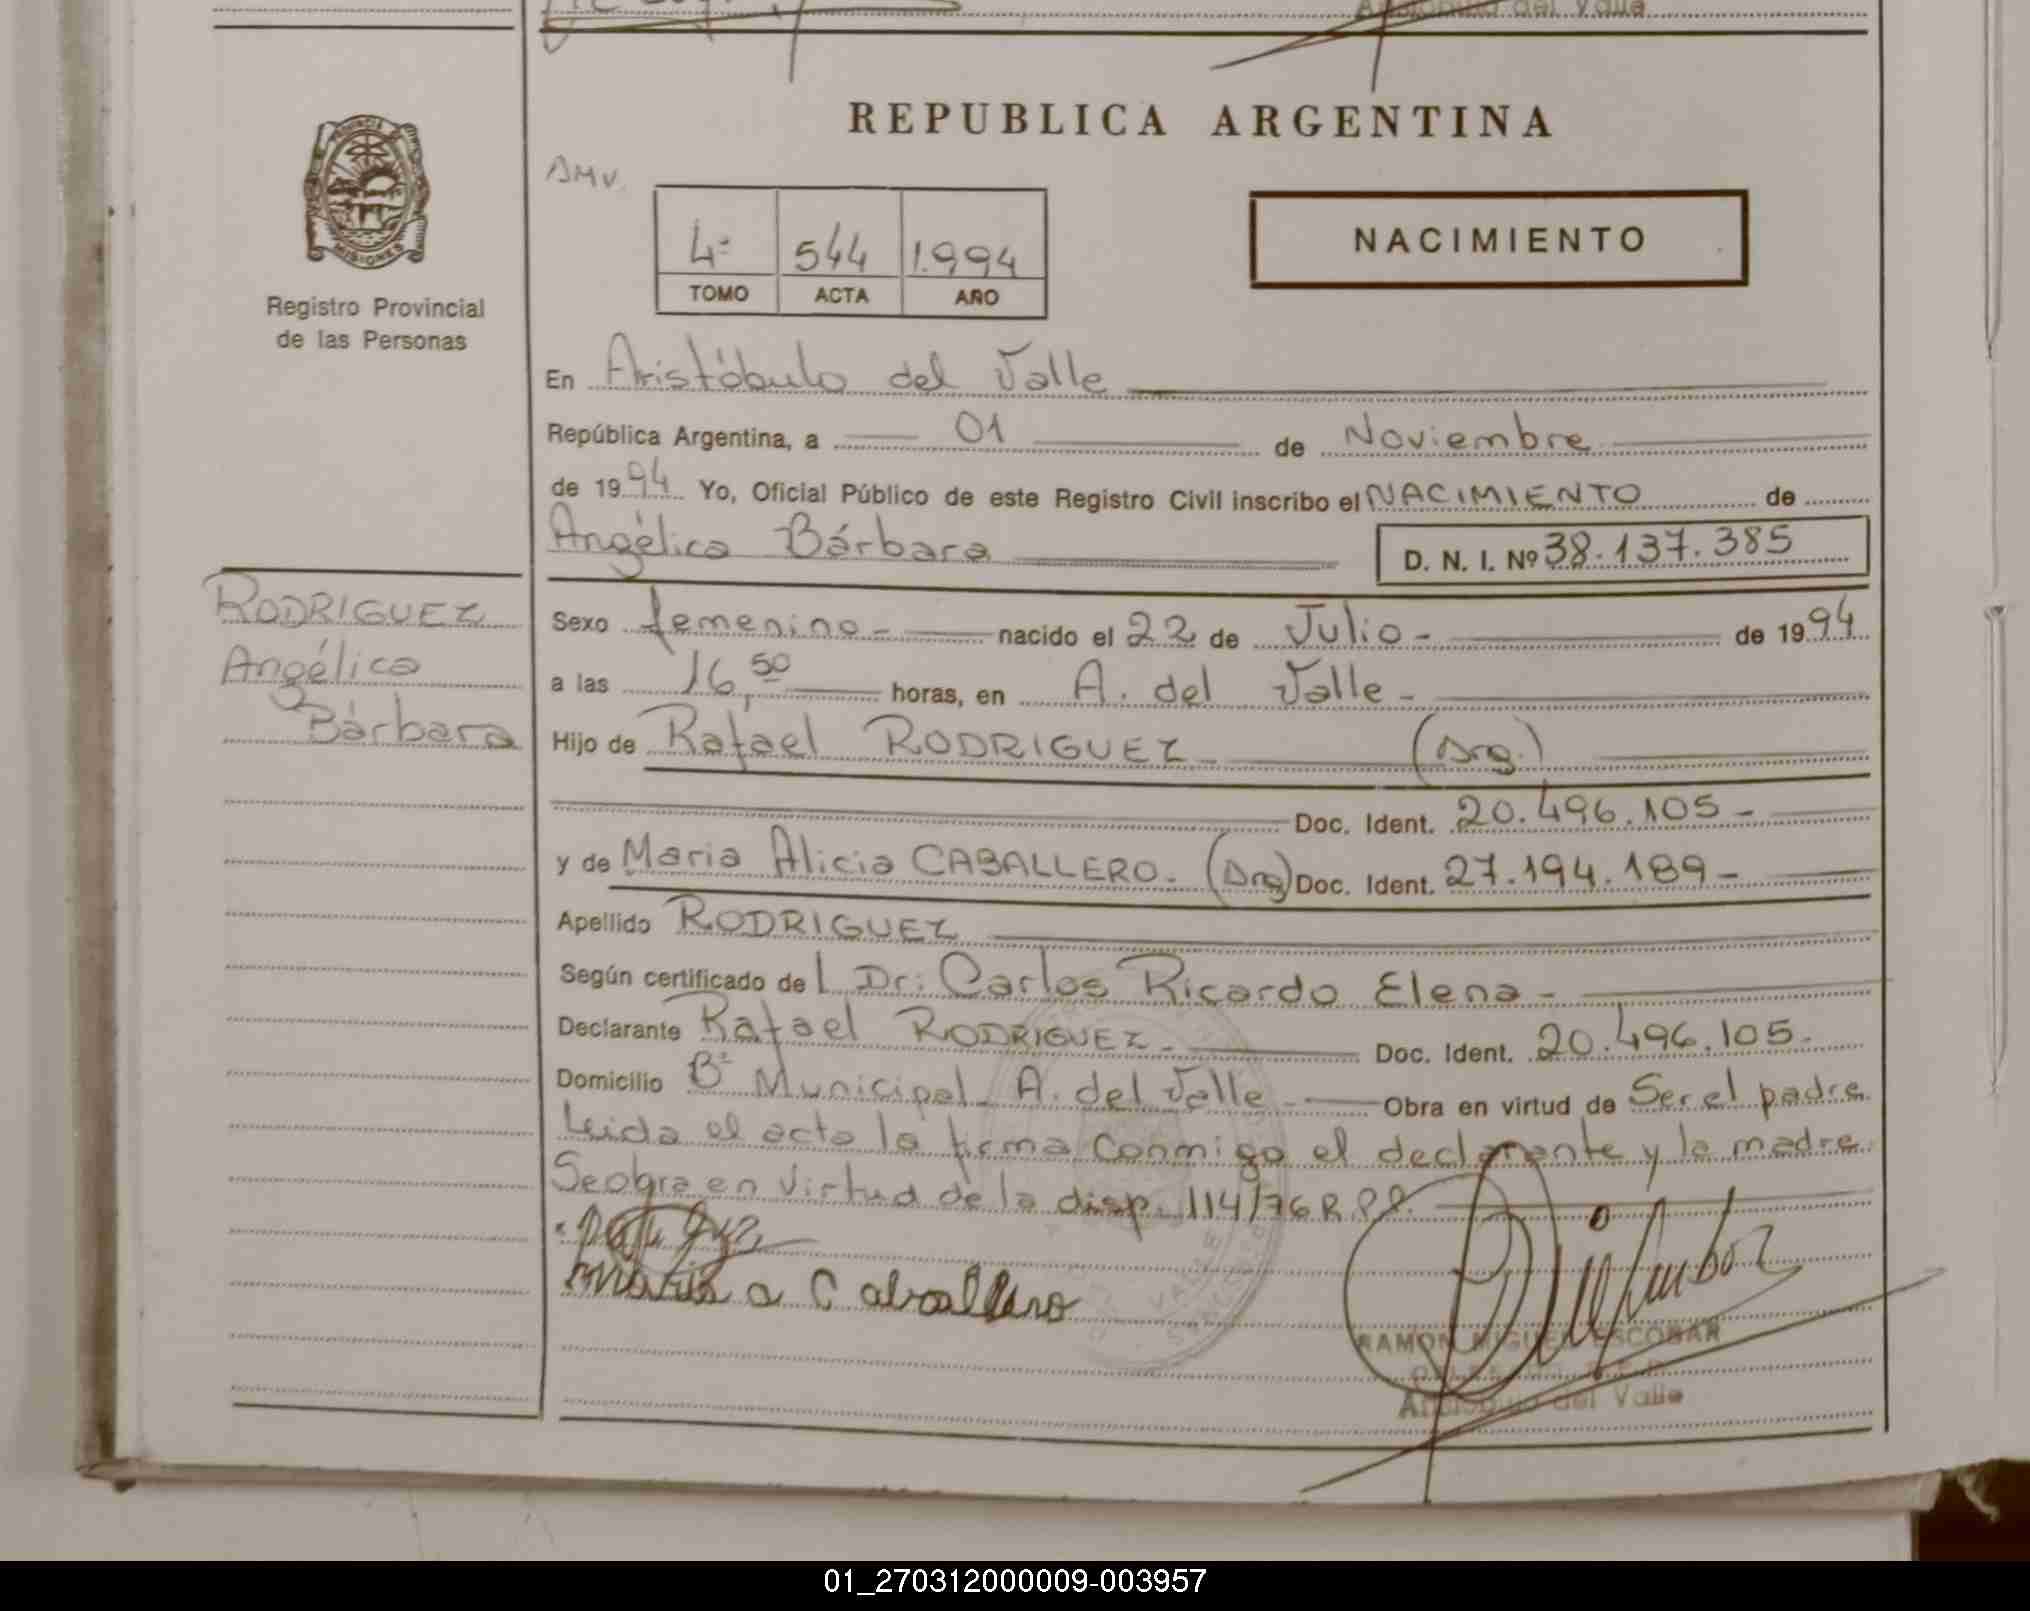 Aristóbulo del Valle
REPUBLICA ARGENTINA
PROVINCIA
MISIONES
Registro Provincial
de las Personas
AMV.
4º 544 1.994
TOMO ACTA AÑO
NACIMIENTO
En Aristóbulo del Valle
República Argentina, a 01 de Noviembre
de 1994 Yo, Oficial Público de este Registro Civil inscribo el NACIMIENTO de
Angélica Bárbara D. N. I. Nº 38.137.385
RODRIGUEZ
Angélica
Bárbara
Sexo femenino - nacido el 22 de Julio - de 1994
a las 16,50 horas, en A. del Valle -
Hijo de Rafael RODRIGUEZ (Arg.)
Doc. Ident. 20.496.105 -
y de Maria Alicia CABALLERO. (Arg) Doc. Ident. 27.194.189 -
Apellido RODRIGUEZ
Según certificado de l Dr: Carlos Ricardo Elena -
Declarante Rafael RODRIGUEZ - Doc. Ident. 20.496.105.
Domicilio Bº Municipal A. del Valle - Obra en virtud de Ser el padre.
Leida el acta la firma conmigo el declarante y la madre.
Se obra en virtud de la disp. 114/76 R.P.P.
Maria a Caballero
RAMON MIGUEL ESCOBAR
Aristóbulo del Valle
01_270312000009-003957